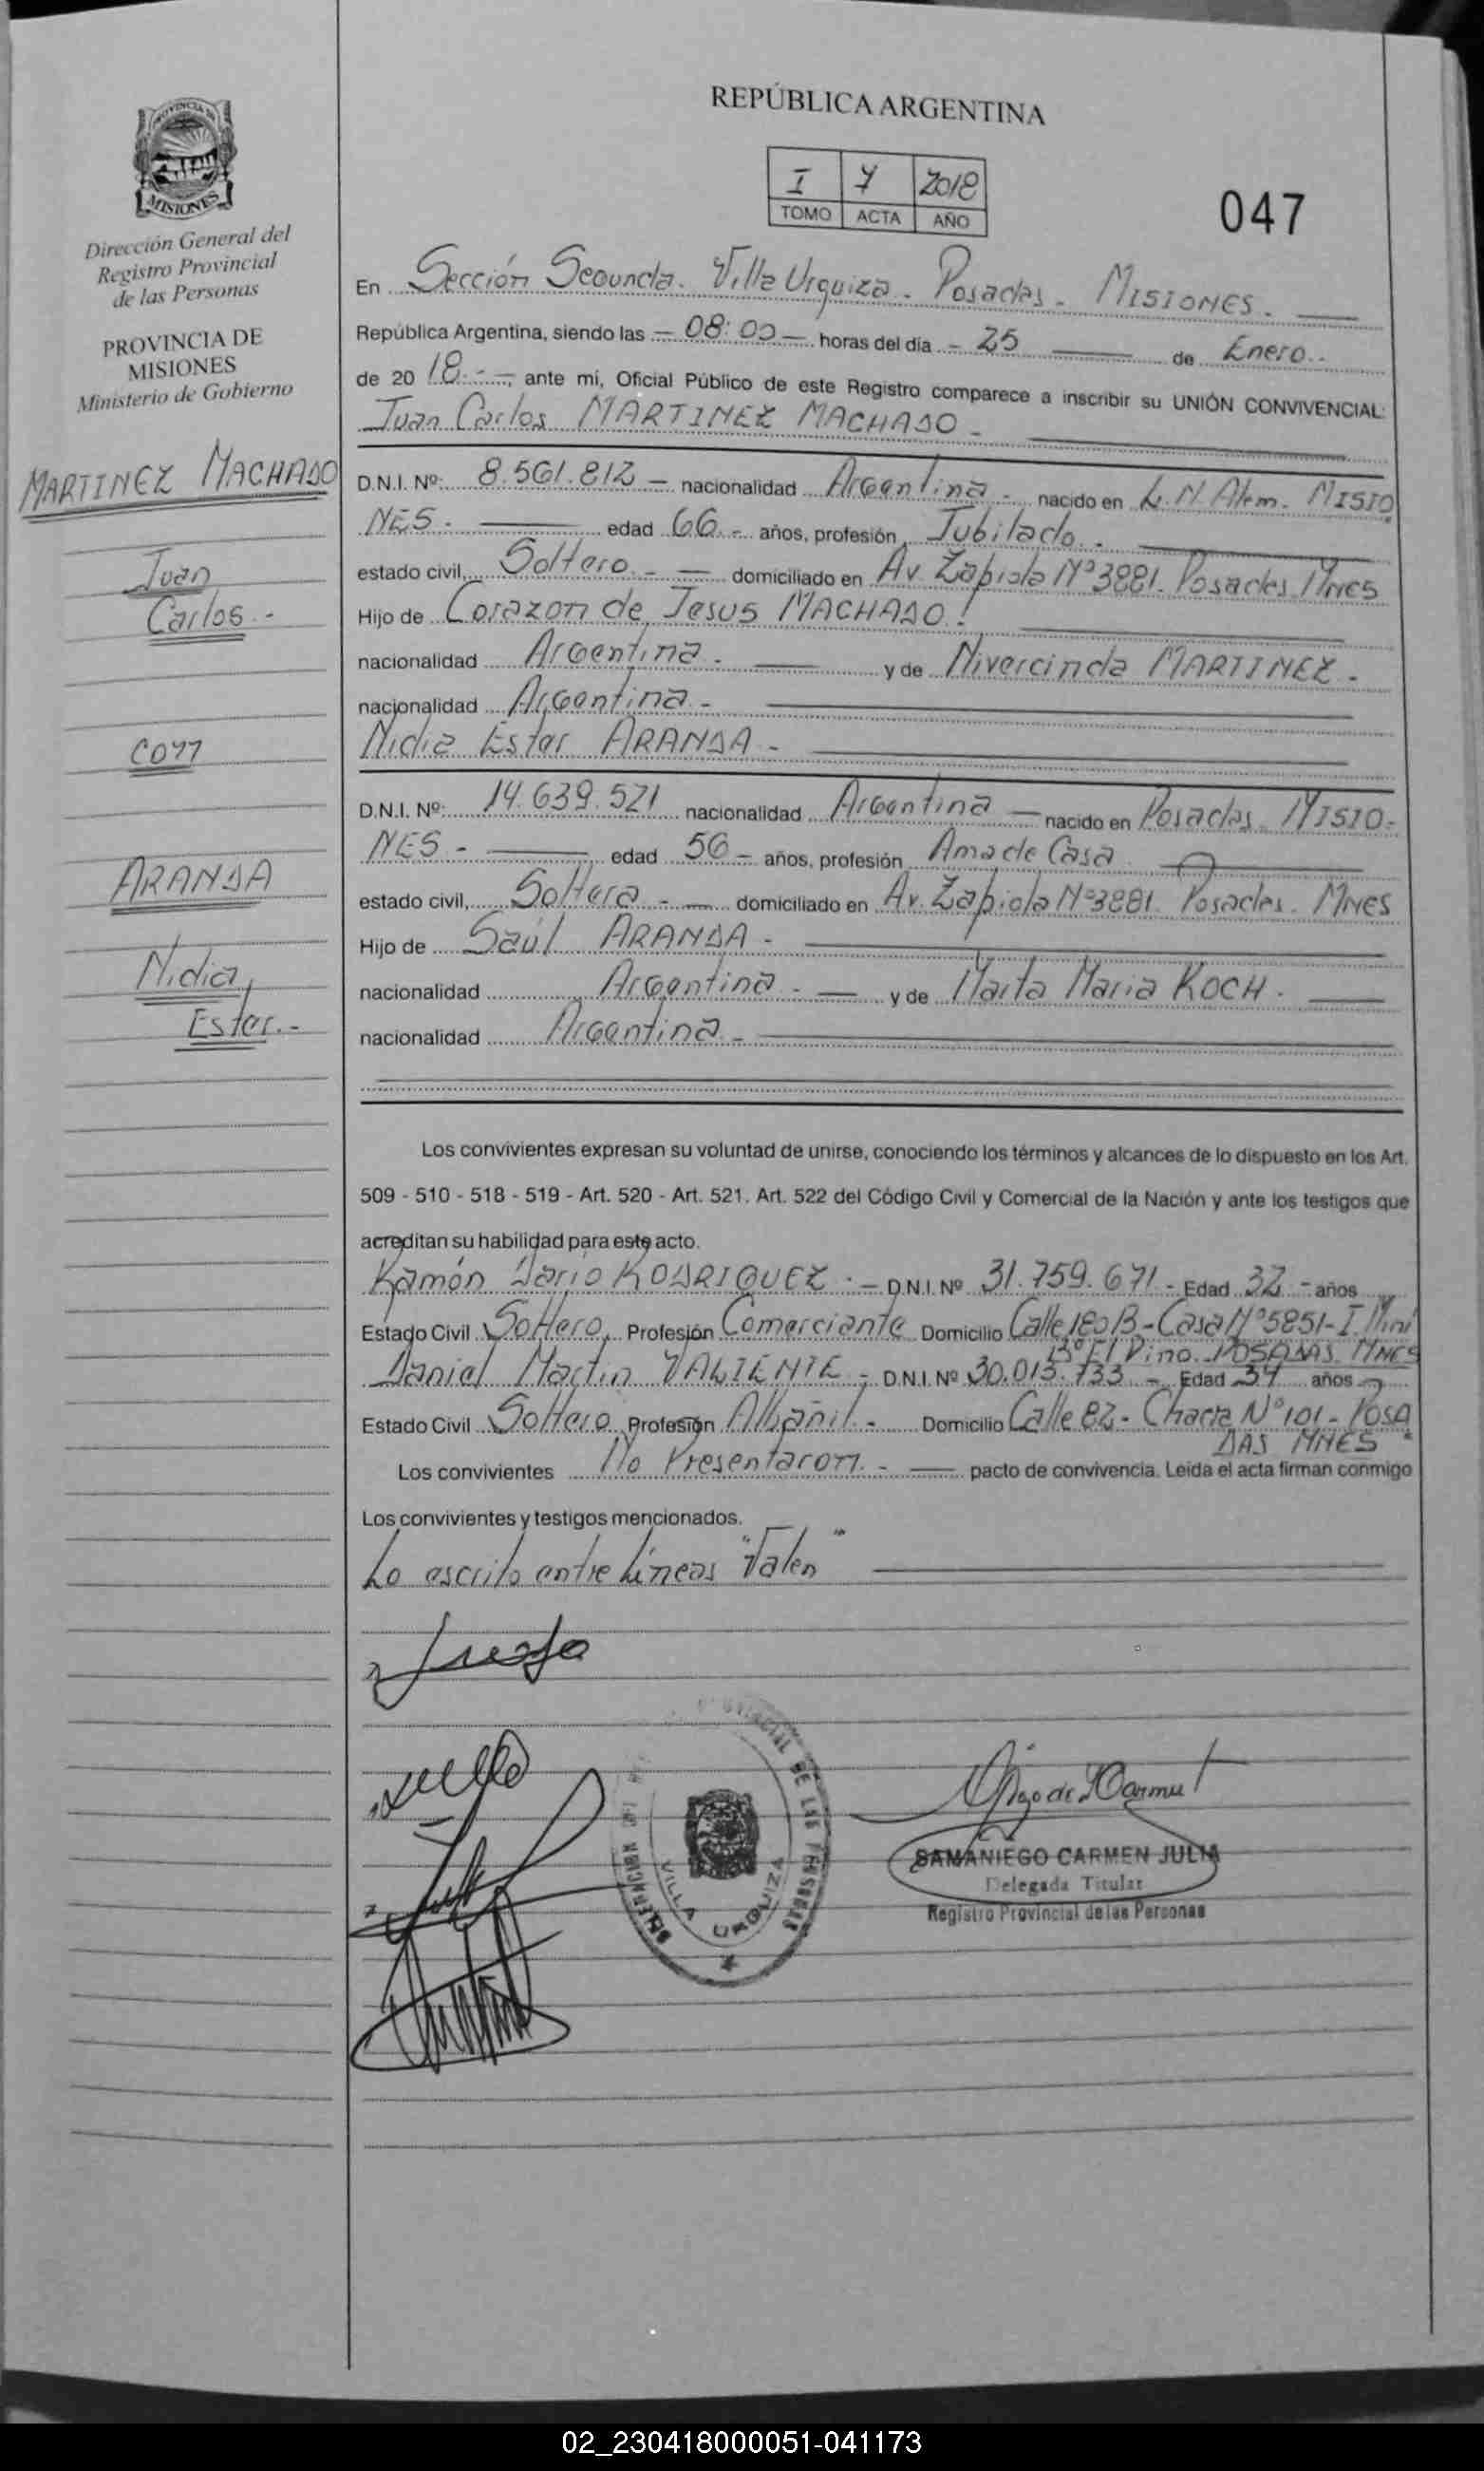 REPÚBLICA ARGENTINA
I 7 2018
TOMO ACTA AÑO
047
PROVINCIA DE
MISIONES
Dirección General del
Registro Provincial
de las Personas
PROVINCIA DE
MISIONES
Ministerio de Gobierno
MARTINEZ MACHADO
Juan
Carlos.-
con
ARANDA
Nidia
Ester.-
En Sección Segunda. Villa Urquiza. Posadas. MISIONES.
República Argentina, siendo las — 08:00 — horas del día - 25 — de Enero.
de 2018.- -, ante mí, Oficial Público de este Registro comparece a inscribir su UNIÓN CONVIVENCIAL:
Juan Carlos MARTINEZ MACHADO -
D.N.I. Nº: 8.561.812 — nacionalidad Argentina - nacido en L.N. Alem. MISIO
NES. — edad 66.- años, profesión Jubilado. -
estado civil, Soltero. - — domiciliado en Av Zapiola Nº3881. Posadas Mnes
Hijo de Corazon de Jesus MACHADO.
nacionalidad Argentina. — y de Nivercinda MARTINEZ.
nacionalidad Argentina. -
Nidia Ester ARANDA -
D.N.I. Nº: 14.639.521 nacionalidad Argentina — nacido en Posadas. MISIO-
NES - — edad 56 - años, profesión Ama de Casa
estado civil, Soltera - — domiciliado en Av. Zapiola Nº3881. Posadas. Mnes
Hijo de Saúl ARANDA -
nacionalidad Argentina. — y de Marta Maria KOCH.
nacionalidad Argentina. -
Los convivientes expresan su voluntad de unirse, conociendo los términos y alcances de lo dispuesto en los Art.
509 - 510 - 518 - 519 - Art. 520 - Art. 521. Art. 522 del Código Civil y Comercial de la Nación y ante los testigos que
acreditan su habilidad para este acto.
Ramón Dario RODRIGUEZ. — D.N.I. Nº 31.759.671 - Edad 32 - años
Estado Civil Soltero, Profesión Comerciante Domicilio Calle 180B - Casa Nº5851- I. Mini
Bº El Pino. POSADAS. MNES
Daniel Martin VALIENTE - D.N.I. Nº 30.013.733. - Edad 34 años
Estado Civil Soltero, Profesión Albañil. - Domicilio Calle 82 - Chacra Nº101 - POSA
DAS MNES
Los convivientes No Presentaron. - — pacto de convivencia. Leída el acta firman conmigo
Los convivientes y testigos mencionados.
Lo escrito entre Líneas "Valen"
VILLA URQUIZA
SAMANIEGO CARMEN JULIA
Delegada Titular
Registro Provincial de las Personas
02_230418000051-041173